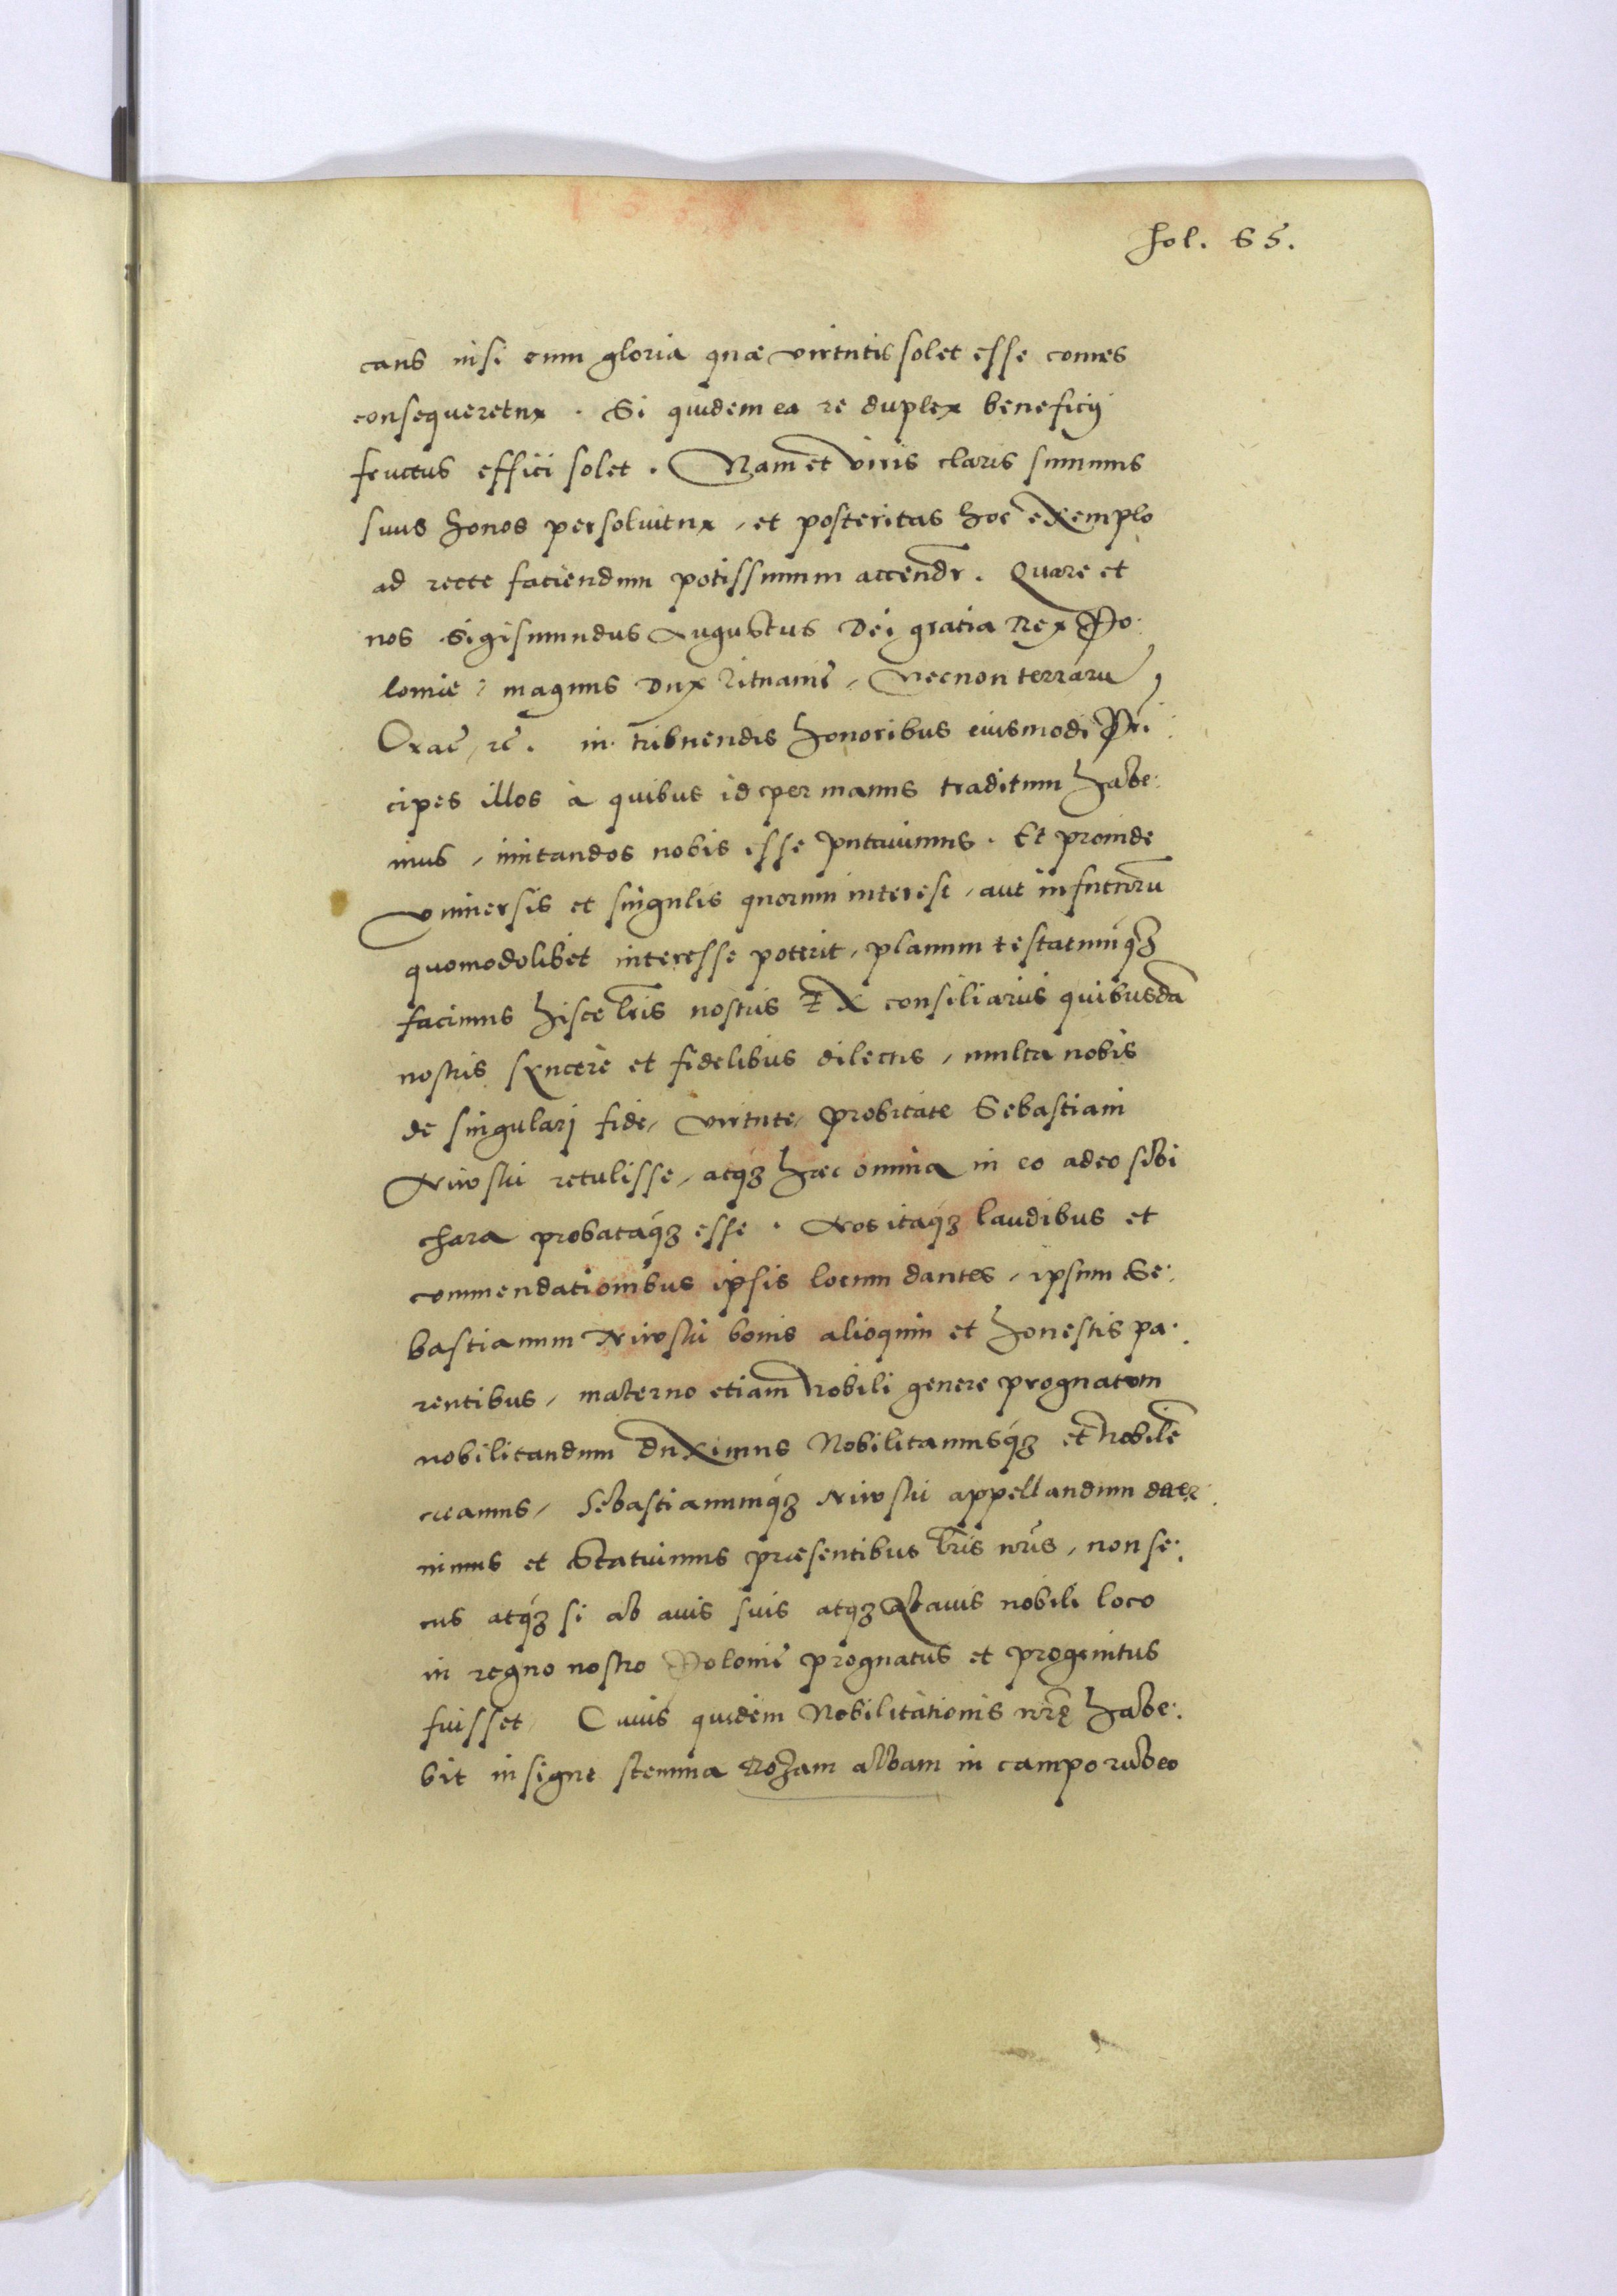 fol. 65.
cans nisi eum gloria quæ virtutis solet esse comes
consequeretur. Si quidem ea re duplex beneficij
fructus effici solet. Nam et viris claris summus
suus honos persolvitur, et posteritas hoc exemplo
ad recte faciendum potissimum accendr. Quare et
nos Sigismundus Augustus Dei gratia Rex Po:
lonie: magnus Dux Lituanie, Necnon terraru,
Oxae, rc. in tribuendis honoribus eiusmodi Pri:
cipes illos à quibus id per manus traditum habe:
mus, imitandos nobis esse putavimus. Et proinde
Universis et singulis quorum interest, aut in futuru
quomodolibet interesse poterit, planum testatumq́ꝫ
facimus hisce lris nostris Ex consiliarijs quibusda
nostris syncerè et fidelibus dilectis, multa nobis
de singulari fide, virtute, probitate Sebastiani
Niwski retulisse, atqꝫ hæc omnia in eo adeo sibi
chara probataq́ꝫ esse. Nos itaq́ꝫ laudibus et
commendationibus ipsis locum dantes, ipsum Se:
bastianum Niwski bonis alioquin et honestis pa:
rentibus, materno etiam nobili genere prognatum
nobilitandum duximus Nobilitamusq́ꝫ et nobile
creamus, Sebastianumq́ꝫ Niwski appellandum decer:
nimus et Statuimus præsentibus lris nris, non se:
cus atq́ꝫ si ab avis suis atqꝫ Abavis nobili loco
in regno nostro Polonie prognatus et progenitus
fuisset, Cuius quidem Nobilitationis nrę habe:
bit insigne stemma Rozam albam in campo rubeo